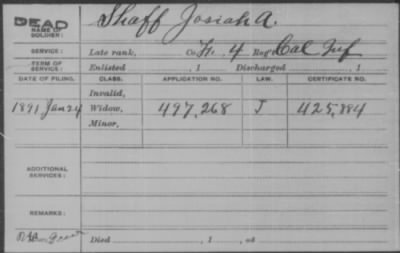 DEAD
NAME OF SOLDIER: Shaff Josiah A.
SERVICE: Late rank, Co. H, 4 Reg't Cal Inf
TERM OF SERVICE: Enlisted , 1 Discharged , 1
DATE OF FILING. CLASS. APPLICATION NO. LAW. CERTIFICATE NO.
Invalid,
1891 Jan 24 Widow, 497,268 J 425,884
Minor,
ADDITIONAL SERVICES:
REMARKS:
Died , 1 , at